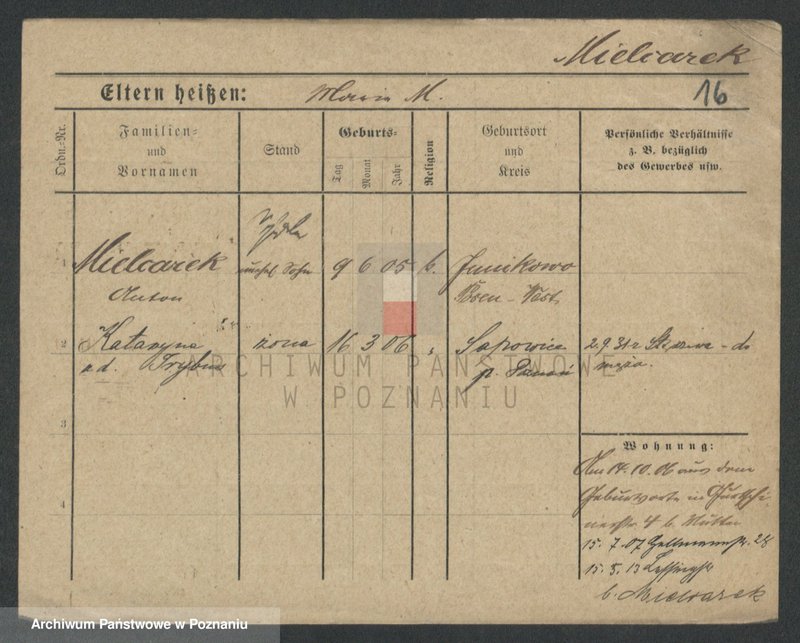 Mielcarek
Eltern heißen: Maria M. 16
Ordn.-Nr.
Familien- und Vornamen
Stand
Geburts-
Tag Monat Jahr
Religion
Geburtsort und Kreis
Persönliche Verhältnisse z. B. bezüglich des Gewerbes usw.
1 Mielcarek Sohn 9 6 05 k. Junikowo
Anton Posen - West
2 Katarzyna żona 16 3 06 " Sapowice 2.9.31 z
z d. p. Poznań męża.
ARCHIWUM PAŃSTWOWE
W POZNANIU
3
Wohnung:
Am 14.10.06 aus dem
Geburtsorte n.
4 4 b. Mutter
15.7.07 28
15.5.13 Lessingstr
b. Mielcarek
Archiwum Państwowe w Poznaniu